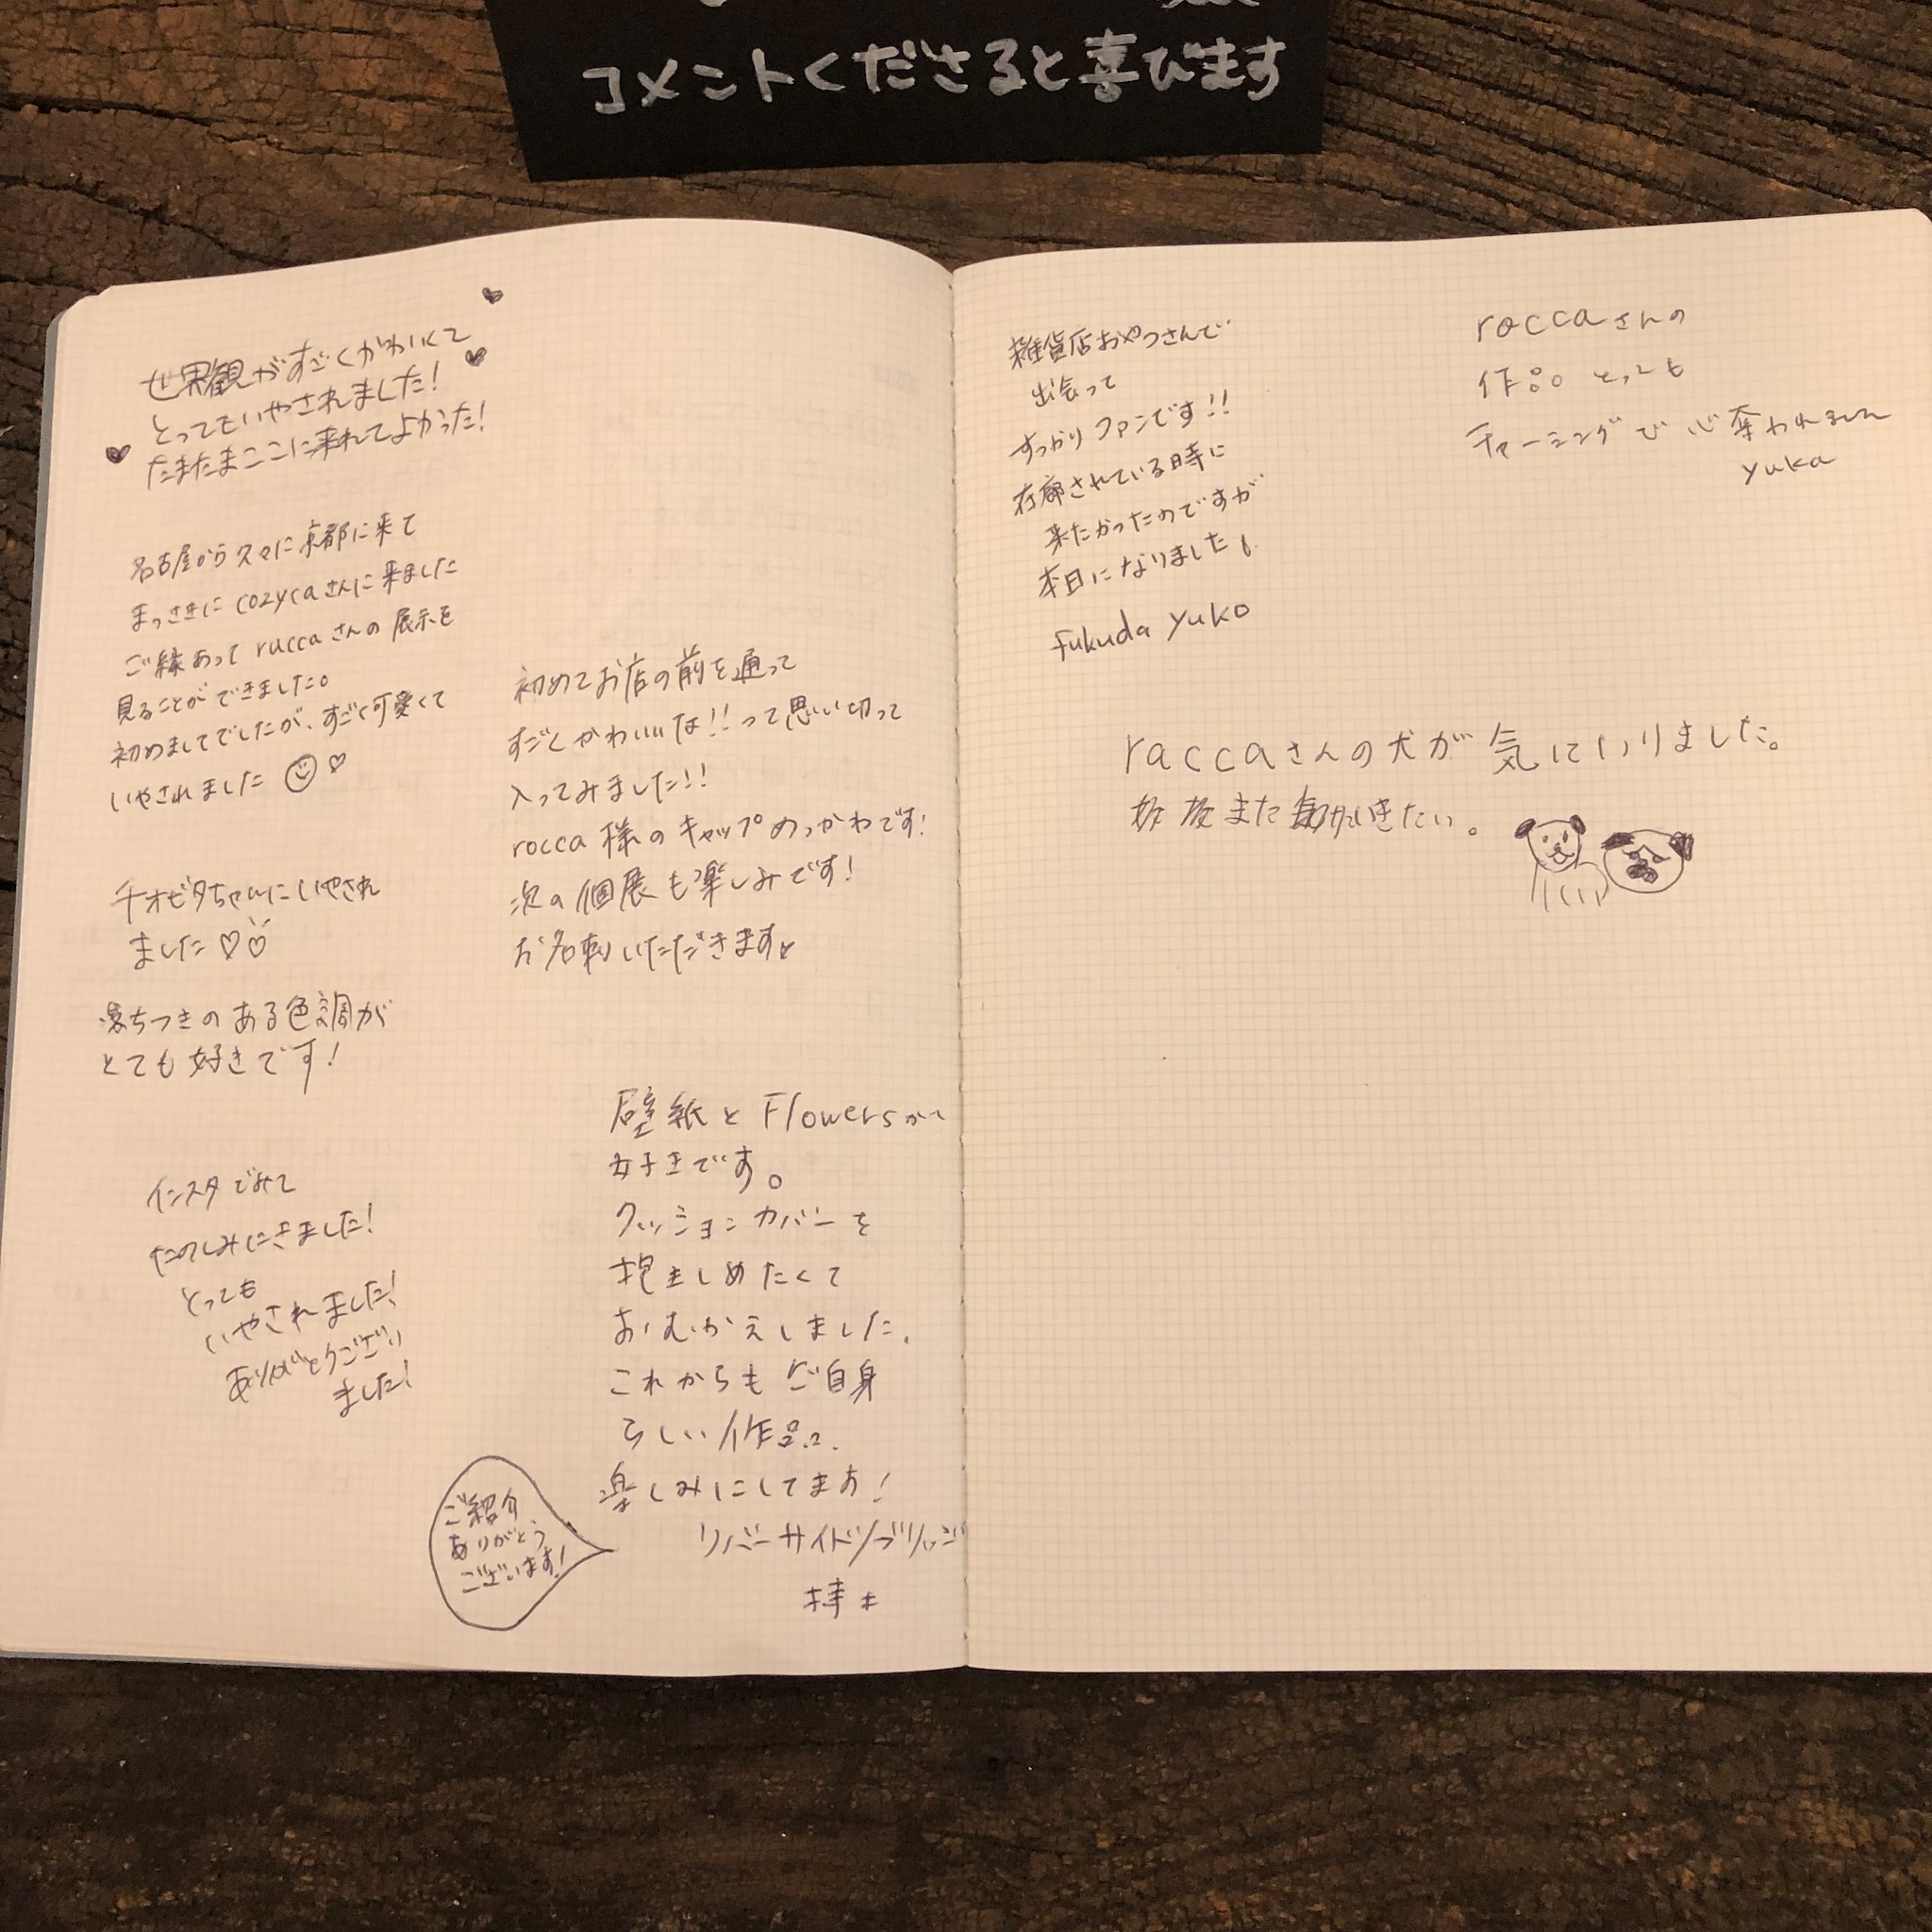 コメントくださると喜びます
世界観がすごくかわいくて
とってもいやされました!
たまたまここに来れてよかった!
名古屋から久々に京都に来て
まっさきにcozycaさんに来ました
ご縁あってruccaさんの展示を
見ることができました。
初めましてでしたが、すごく可愛くて
いやされました
チオビタちゃんにいやされ
ました
落ちつきのある色調が
とても好きです!
インスタでみて
たのしみにきました!
とっても
いやされました!
ありがとうござい
ました!
初めてお店の前を通って
すごくかわいいな!!って思い切って
入ってみました!!
rocca様のキャップめっかわです!
次の個展も楽しみです!
お名刺いただきます
壁紙とFlowersが
好きです。
クッションカバーを
抱きしめたくて
おむかえしました.
これからもご自身
らしい作品
楽しみにしてます!
リバーサイドブリッジ
ご紹介
ありがとう
ございます!
雑貨店おやつさんで
出会って
すっかりファンです!!
在廊されている時に
来たかったのですが
本日になりました
fukuda yuko
roccaさんの
作品 とっても
チャーミングで心奪われました
yuka
raccaさんの犬が気にいりました。
また いきたい。